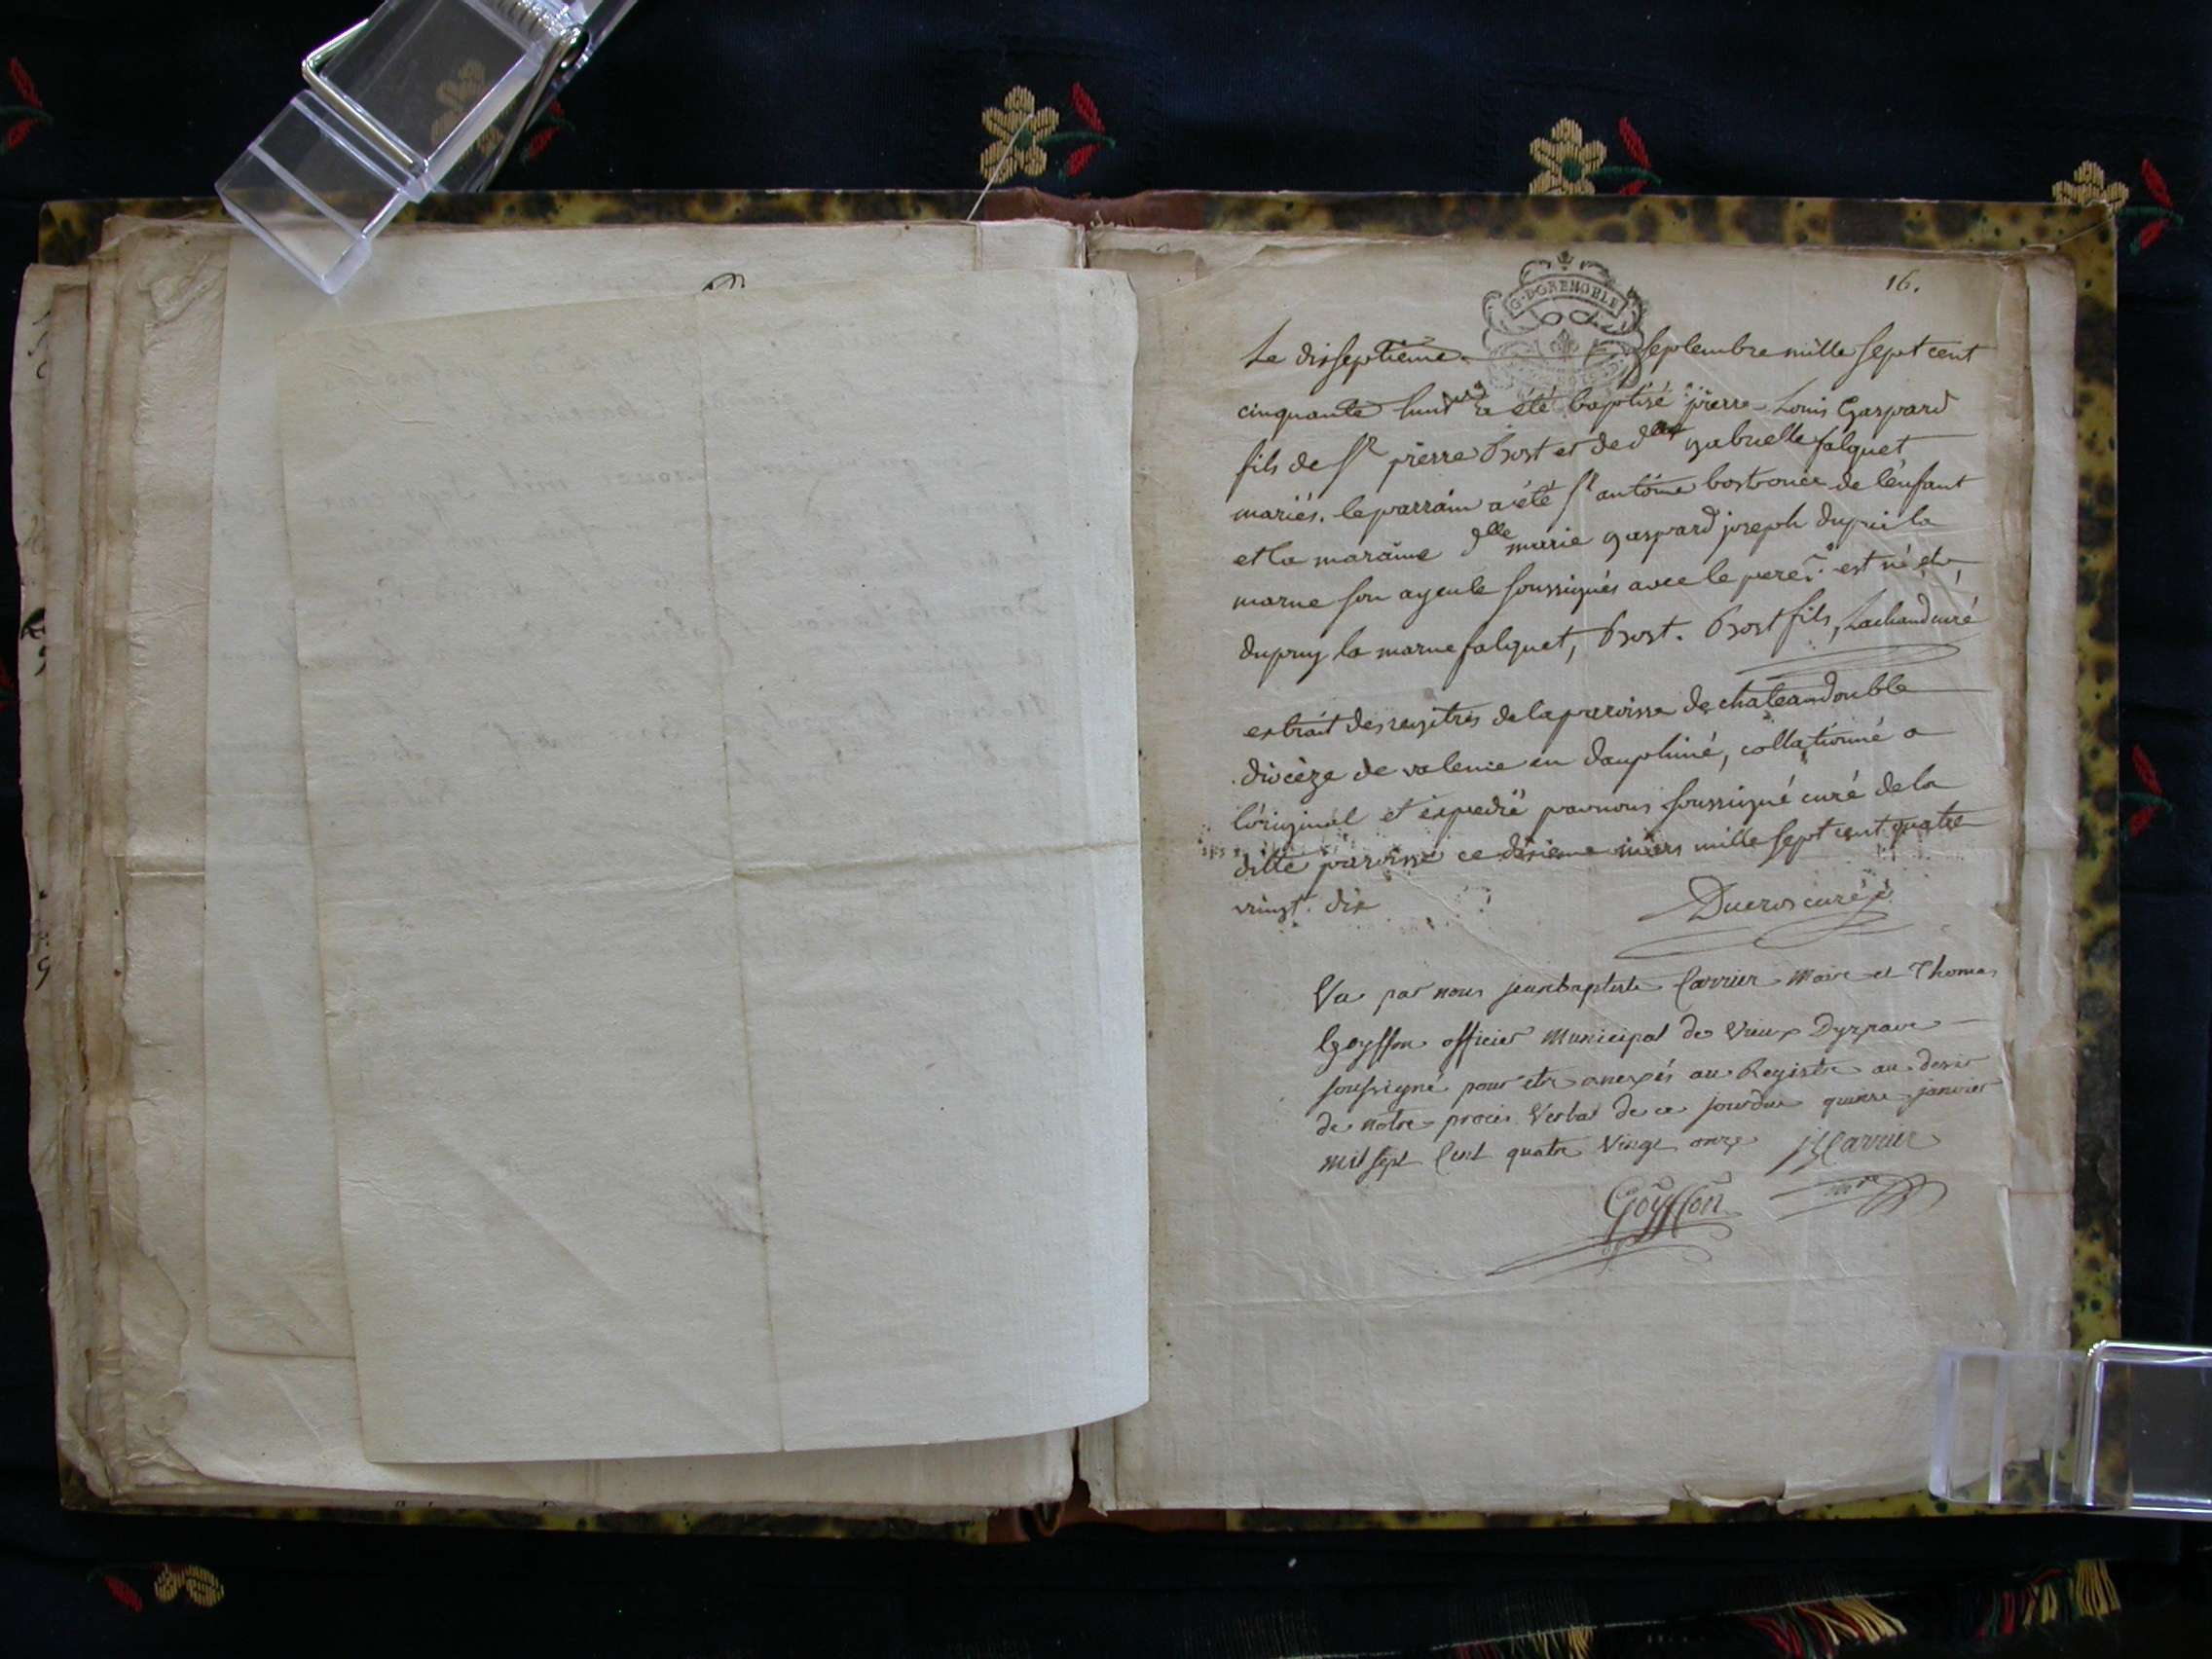 16.
G. D GRENOBLE
Le disseptième septembre mille sept cent
cinquante huit a été baptisé pierre Louis Gaspard
fils de Sr pierre Bost et de dlle gabrielle falquet
mariés. le parrain a été Sr antoine bost oncle de l'enfant
et la maraine dlle marie gaspard joseph dupui la
marne son ayeule soussignés avec le pere. est né et
dupuy la marne falquet, Bost. Bost fils, Lachaud curé
extrait des regitres de la paroisse de chateaudouble
diocèze de valence en dauphiné, collationné a
l'original et expedié par nous soussigné curé de la
ditte paroisse ce dixieme mars mille sept cent quatre
vingt dix Ducros curé
Vu par nous jean baptiste Carrier Maire et Thomas
Goysson officier Municipal de Vieux
soussigné pour etre anexés au Registre au desir
de notre procès Verbal de ce jourdui quinze janvier
mil sept Cent quatre Vingt onze JB Carrier
Goysson mre